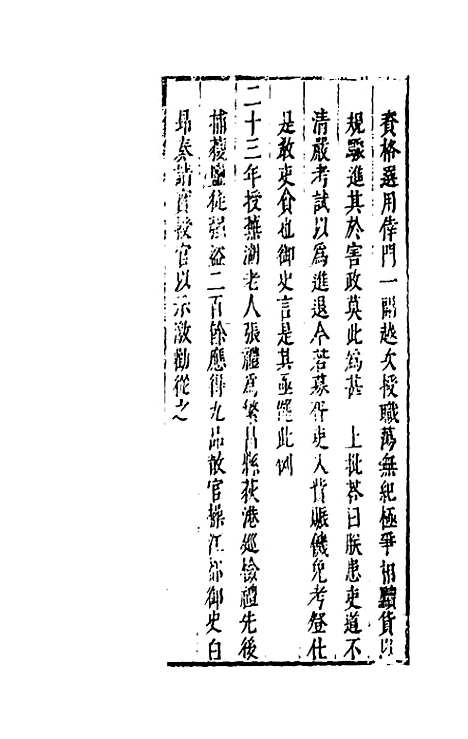 資格選用倖門一開越次授職蕩無紀極爭相黷貨以
規驟進其於害政莫此為甚　上批答曰朕患吏道不
清嚴考試以為進退今若募
吏入貲賑饑免考登仕
是敢吏貪也御史言是其亟罷此例
二十三年授蕪湖老人張禮為繁昌縣荻港巡檢禮先後
捕獲鹽徒強盜二百餘應得九品散官操江都御史白
昂奏請實授官以示激勸從之